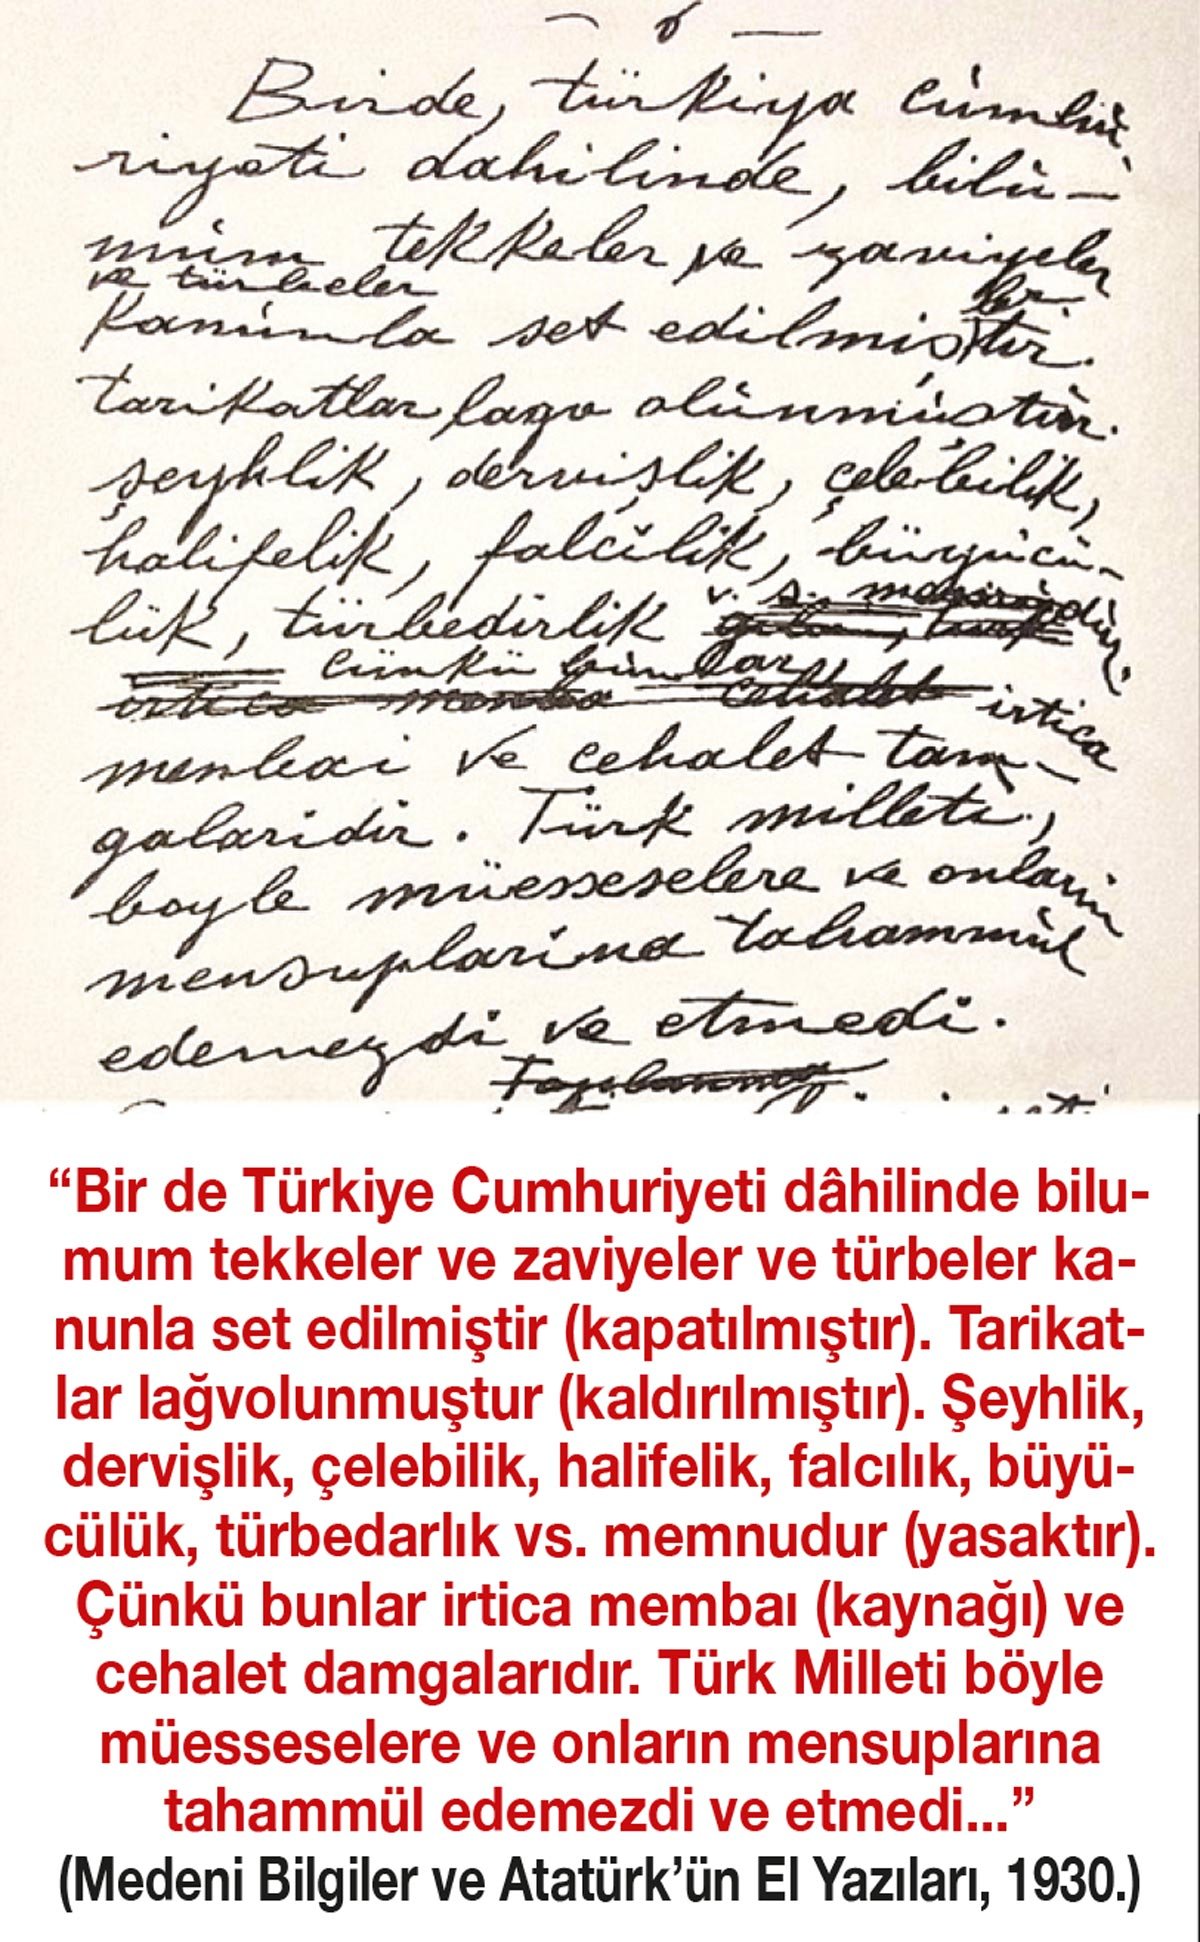 — 6 —
Birde, türkiya cümhü-
riyeti dahilinde, bilü-
müm tekkeler ve zaviyeler
ve türbeler
kanunla set edilmiştir.
tarikatlar lagv olünmüştür.
şeyhlik, dervişlik, çelebilik,
halifelik, falcilik, büyücü-
lük, türbedirlik v. s.
çünkü bunlar,
irtica
menbai ve cehalet tam-
galaridir. Türk milleti,
boyle müesseselere ve onlarin
mensuplarina tahammül
edemezdi ve etmedi.
“Bir de Türkiye Cumhuriyeti dâhilinde bilu-
mum tekkeler ve zaviyeler ve türbeler ka-
nunla set edilmiştir (kapatılmıştır). Tarikat-
lar lağvolunmuştur (kaldırılmıştır). Şeyhlik,
dervişlik, çelebilik, halifelik, falcılık, büyü-
cülük, türbedarlık vs. memnudur (yasaktır).
Çünkü bunlar irtica membaı (kaynağı) ve
cehalet damgalarıdır. Türk Milleti böyle
müesseselere ve onların mensuplarına
tahammül edemezdi ve etmedi...”
(Medeni Bilgiler ve Atatürk’ün El Yazıları, 1930.)